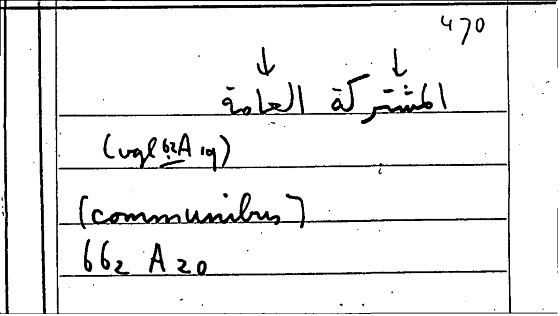 470
المشتركة العامة
(vgl 62A 19)
(communibus)
662 A 20